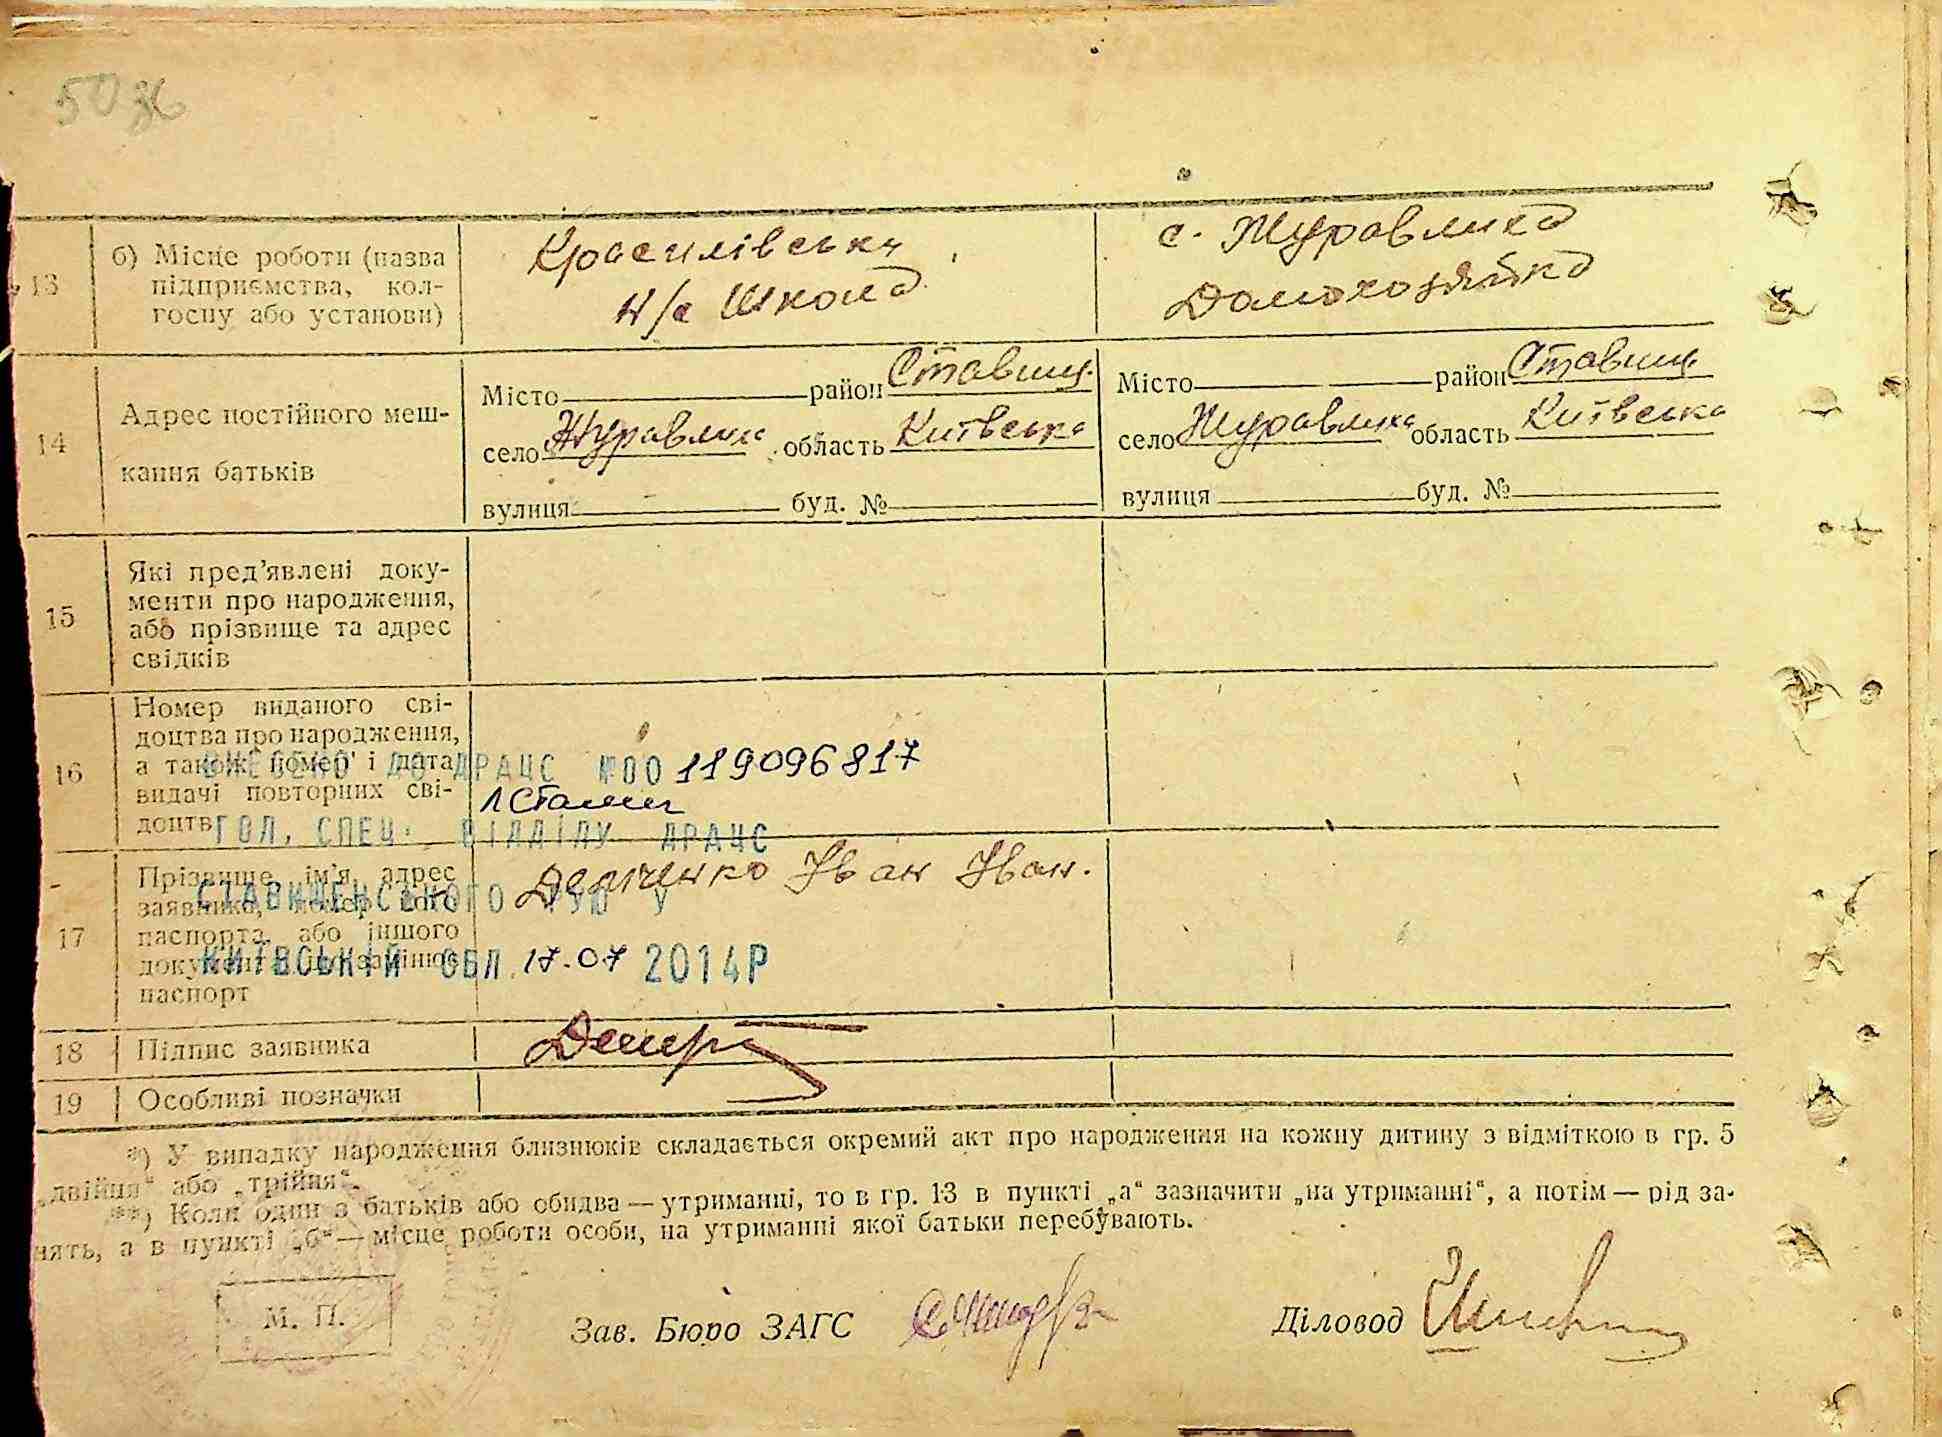 50 зв
13
б) Місце роботи (назва
підприємства, кол-
госпу або установи)
Красилівська
н/с Школа
с. Журавлиха
Домохозяйка
14
Адрес постійного меш-
кання батьків
Місто район Ставищ.
село Журавлиха область Київська
вулиця буд. №
Місто район Ставищ
село Журавлиха область Київська
вулиця буд. №
15
Які пред'явлені доку-
менти про народження,
або прізвище та адрес
свідків
16
Номер виданого сві-
доцтва про народження,
а також номер і дата
видачі повторних сві-
доцтв
ВНЕСЕНО ДО ДРАЦС №00119096817
ГОЛ. СПЕЦ. ВІДДІЛУ ДРАЦС
СТАВИЩЕНСЬКОГО РУЮ У
КИЇВСЬКІЙ ОБЛ. 17.07 2014Р
17
Прізвище, ім'я, адрес
заявника, номер його
паспорта, або іншого
паспорт
Іван Іван.
18
Підпис заявника
19
Особливі позначки
*) У випадку народження близнюків складається окремий акт про народження на кожну дитину з відміткою в гр. 5
„двійня“ або „трійня“.
**) Коли один з батьків або обидва — утриманці, то в гр. 13 в пункті „а“ зазначити „на утриманні“, а потім — рід за-
нять, а в пункті „б“ — місце роботи особи, на утриманні якої батьки перебувають.
М. П.
Зав. Бюро ЗАГС
Діловод